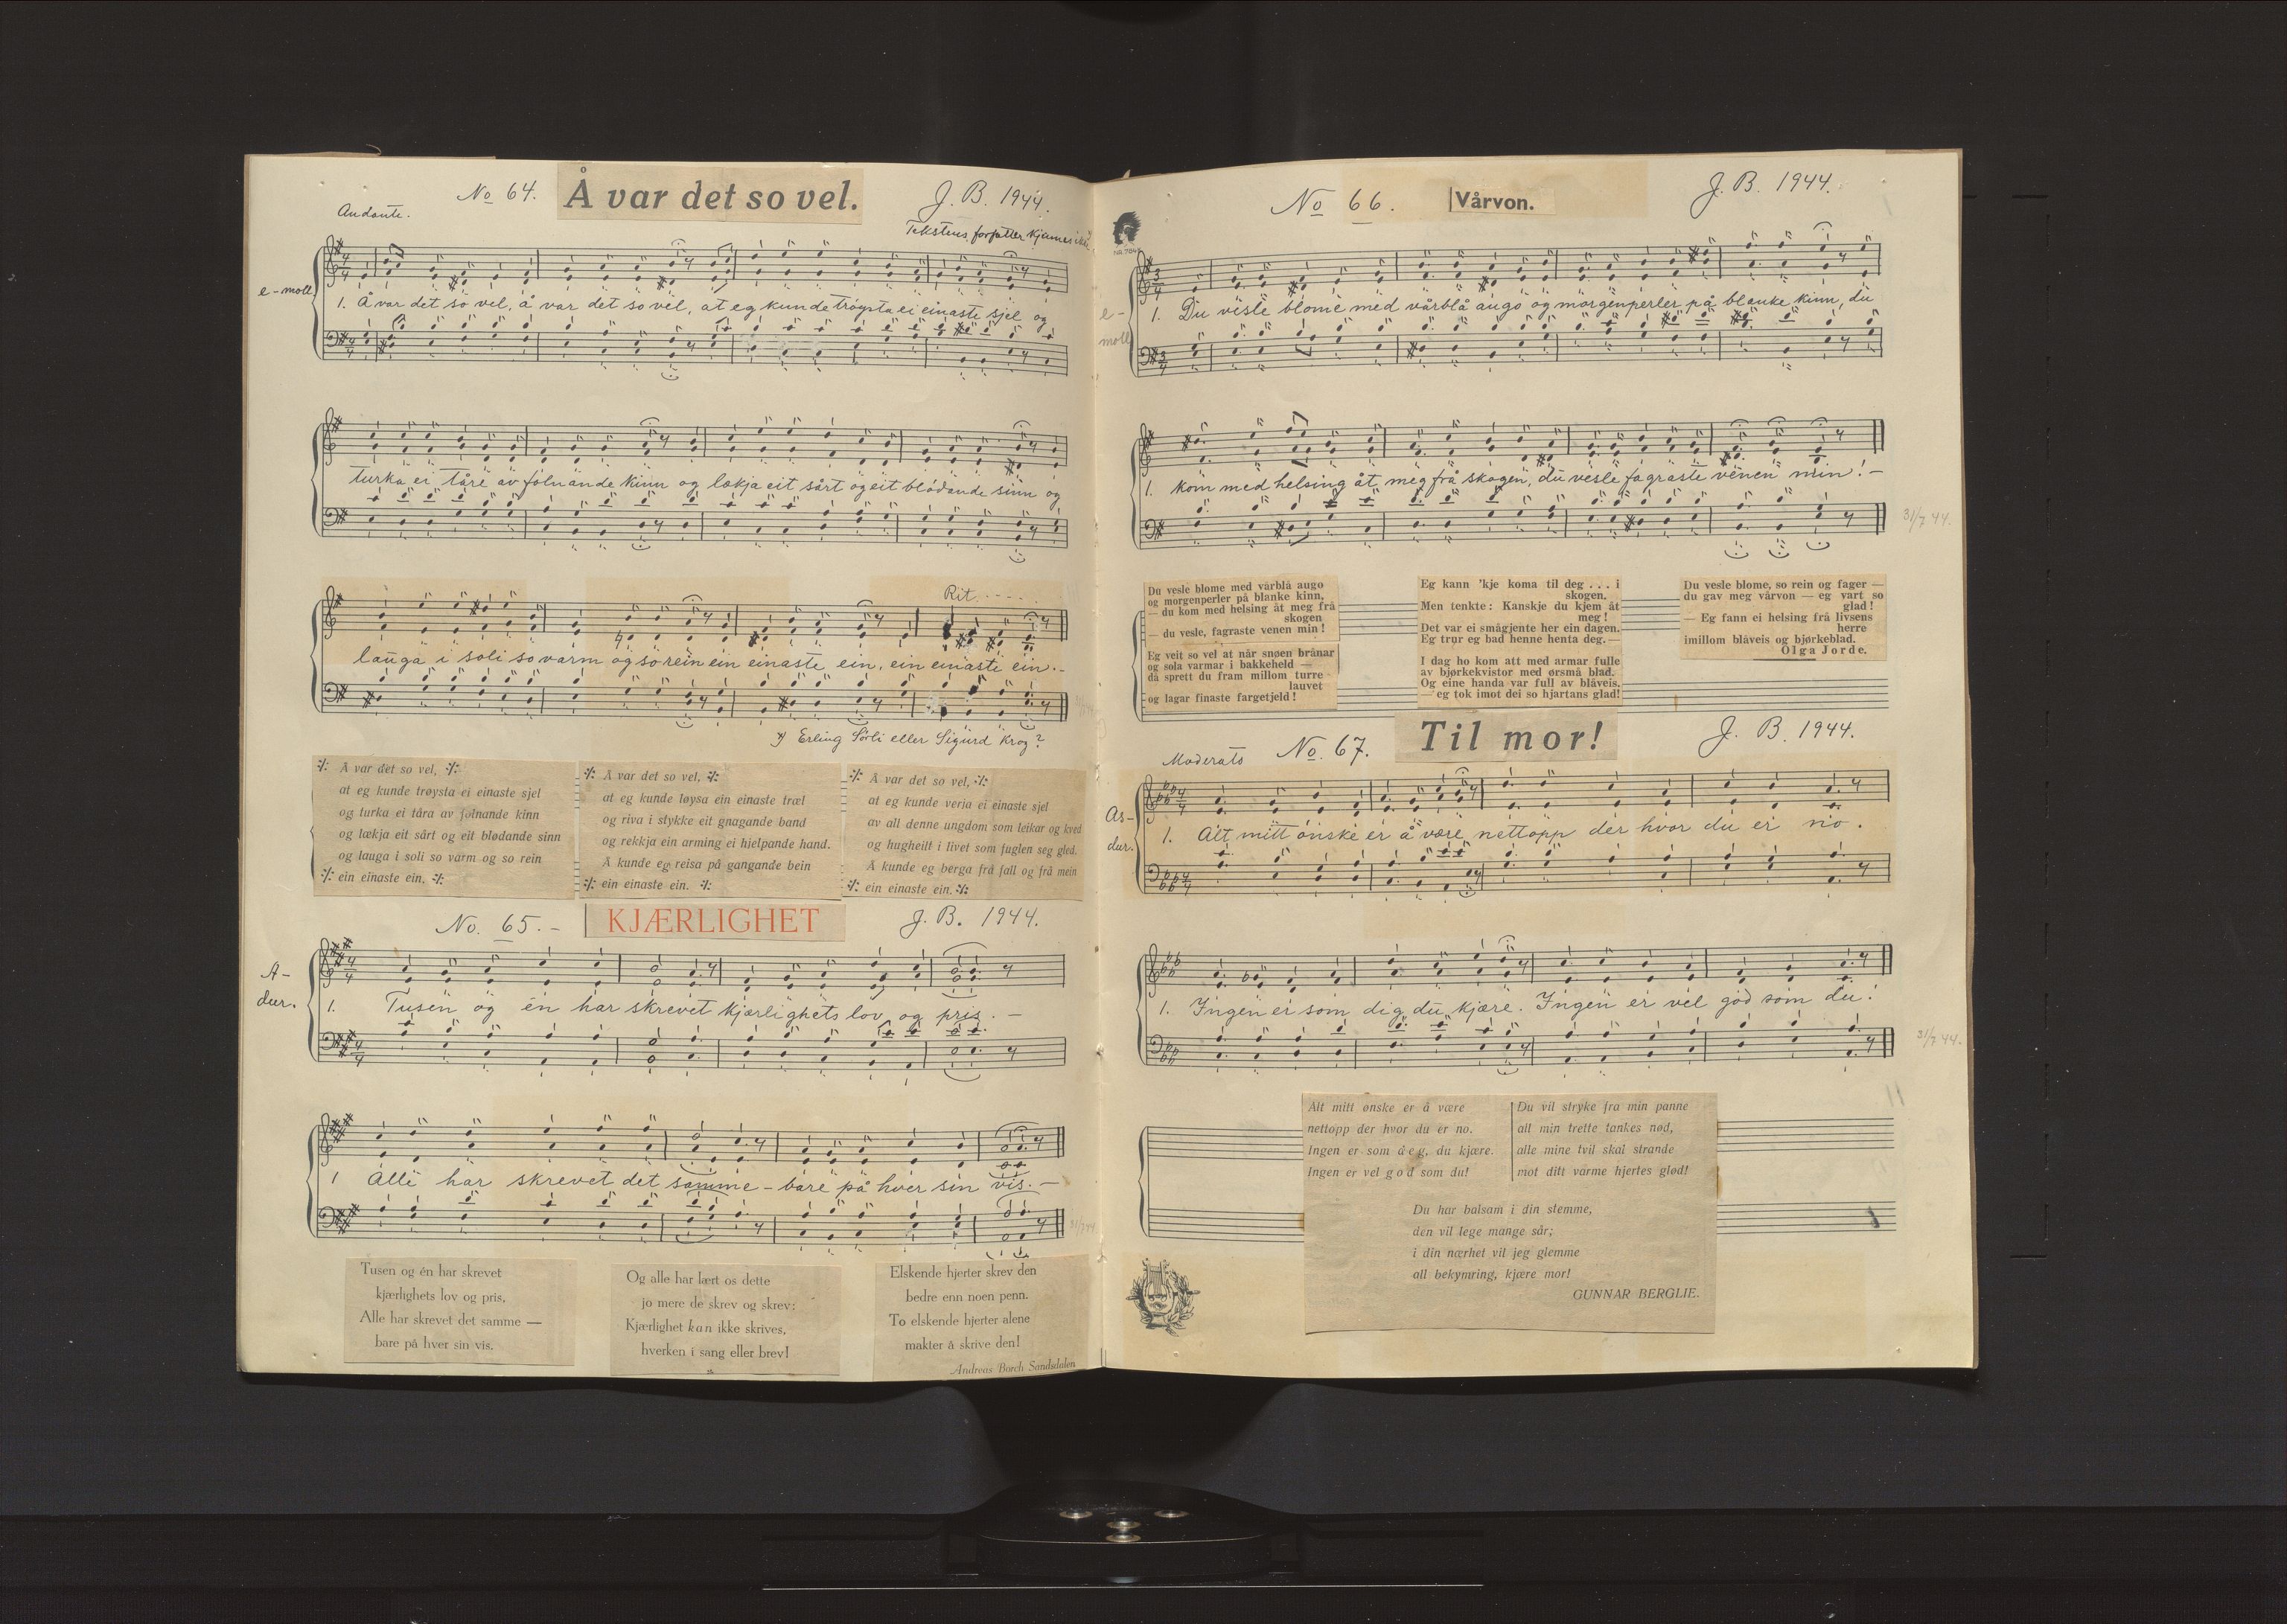 Andante.
No 64.
Å var det so vel.
J. B. 1944.
Tekstens forfatter kjennes ikke
e-moll
1. Å var det so vel, å var det so vel, at eg kunde trøysta ei einaste sjel og
turka ei tåre av folnande kinn og lækja eit sårt og eit blødande sinn og
Rit....
lauga i soli so varm og so rein ein einaste ein, ein einaste ein.-
Erling Sörli eller Sigurd Krog?
⁒ Å var det so vel, ⁒
at eg kunde trøysta ei einaste sjel
og turka ei tåra av folnande kinn
og lækja eit sårt og eit blødande sinn
og lauga i soli so varm og so rein
⁒ ein einaste ein. ⁒
⁒ Å var det so vel, ⁒
at eg kunde løysa ein einaste træl
og riva i stykke eit gnagande band
og rekkja ein arming ei hjelpande hand.
Å kunde eg reisa på gangande bein
⁒ ein einaste ein. ⁒
⁒ Å var det so vel, ⁒
at eg kunde verja ei einaste sjel
av all denne ungdom som leikar og kved
og hugheilt i livet som fuglen seg gled.
Å kunde eg berga frå fall og frå mein
⁒ ein einaste ein. ⁒
No. 65.-
KJÆRLIGHET
J. B. 1944.
A-
dur.
1. Tusen og én har skrevet kjærlighets lov og pris. -
1 Alle har skrevet det samme - bare på hver sin vis. -
31/7 44
Tusen og én har skrevet
kjærlighets lov og pris,
Alle har skrevet det samme —
bare på hver sin vis.
Og alle har lært os dette
jo mere de skrev og skrev:
Kjærlighet kan ikke skrives,
hverken i sang eller brev!
Elskende hjerter skrev den
bedre enn noen penn.
To elskende hjerter alene
makter å skrive den!
Andreas Borch Sandsdalen
No 66.
Vårvon.
J. B. 1944.
e-
moll
1. Du vesle blome med vårblå augo og morgenperler på blanke kinn, du
1. kom med helsing åt meg frå skogen, du vesle fagraste venen min! -
31/7 44.
Du vesle blome med vårblå augo
og morgenperler på blanke kinn,
— du kom med helsing åt meg frå
skogen
— du vesle, fagraste venen min!
Eg veit so vel at når snøen brånar
og sola varmar i bakkeheld —
då sprett du fram millom turre
lauvet
og lagar finaste fargetjeld!
Eg kann 'kje koma til deg . . . i
skogen.
Men tenkte: Kanskje du kjem åt
meg!
Det var ei smågjente her ein dagen.
Eg trur eg bad henne henta deg.—
I dag ho kom att med armar fulle
av bjørkekvistor med ørsmå blad.
Og eine handa var full av blåveis.
— eg tok imot dei so hjartans glad!
Du vesle blome, so rein og fager —
du gav meg vårvon — eg vart so
glad!
— Eg fann ei helsing frå livsens
herre
imillom blåveis og bjørkeblad.
Olga Jorde.
Moderato
No. 67.
Til mor!
J. B. 1944.
As-
dur.
1. Alt mitt ønske er å være nettopp der hvor du er no.
1. Ingen er som dig du kjære. Ingen er vel god som du!
31/7 44.
Alt mitt ønske er å være
nettopp der hvor du er no.
Ingen er som deg, du kjære.
Ingen er vel god som du!
Du vil stryke fra min panne
all min trette tankes nød,
alle mine tvil skal strande
mot ditt varme hjertes glød!
Du har balsam i din stemme,
den vil lege mange sår;
i din nærhet vil jeg glemme
all bekymring, kjære mor!
GUNNAR BERGLIE.